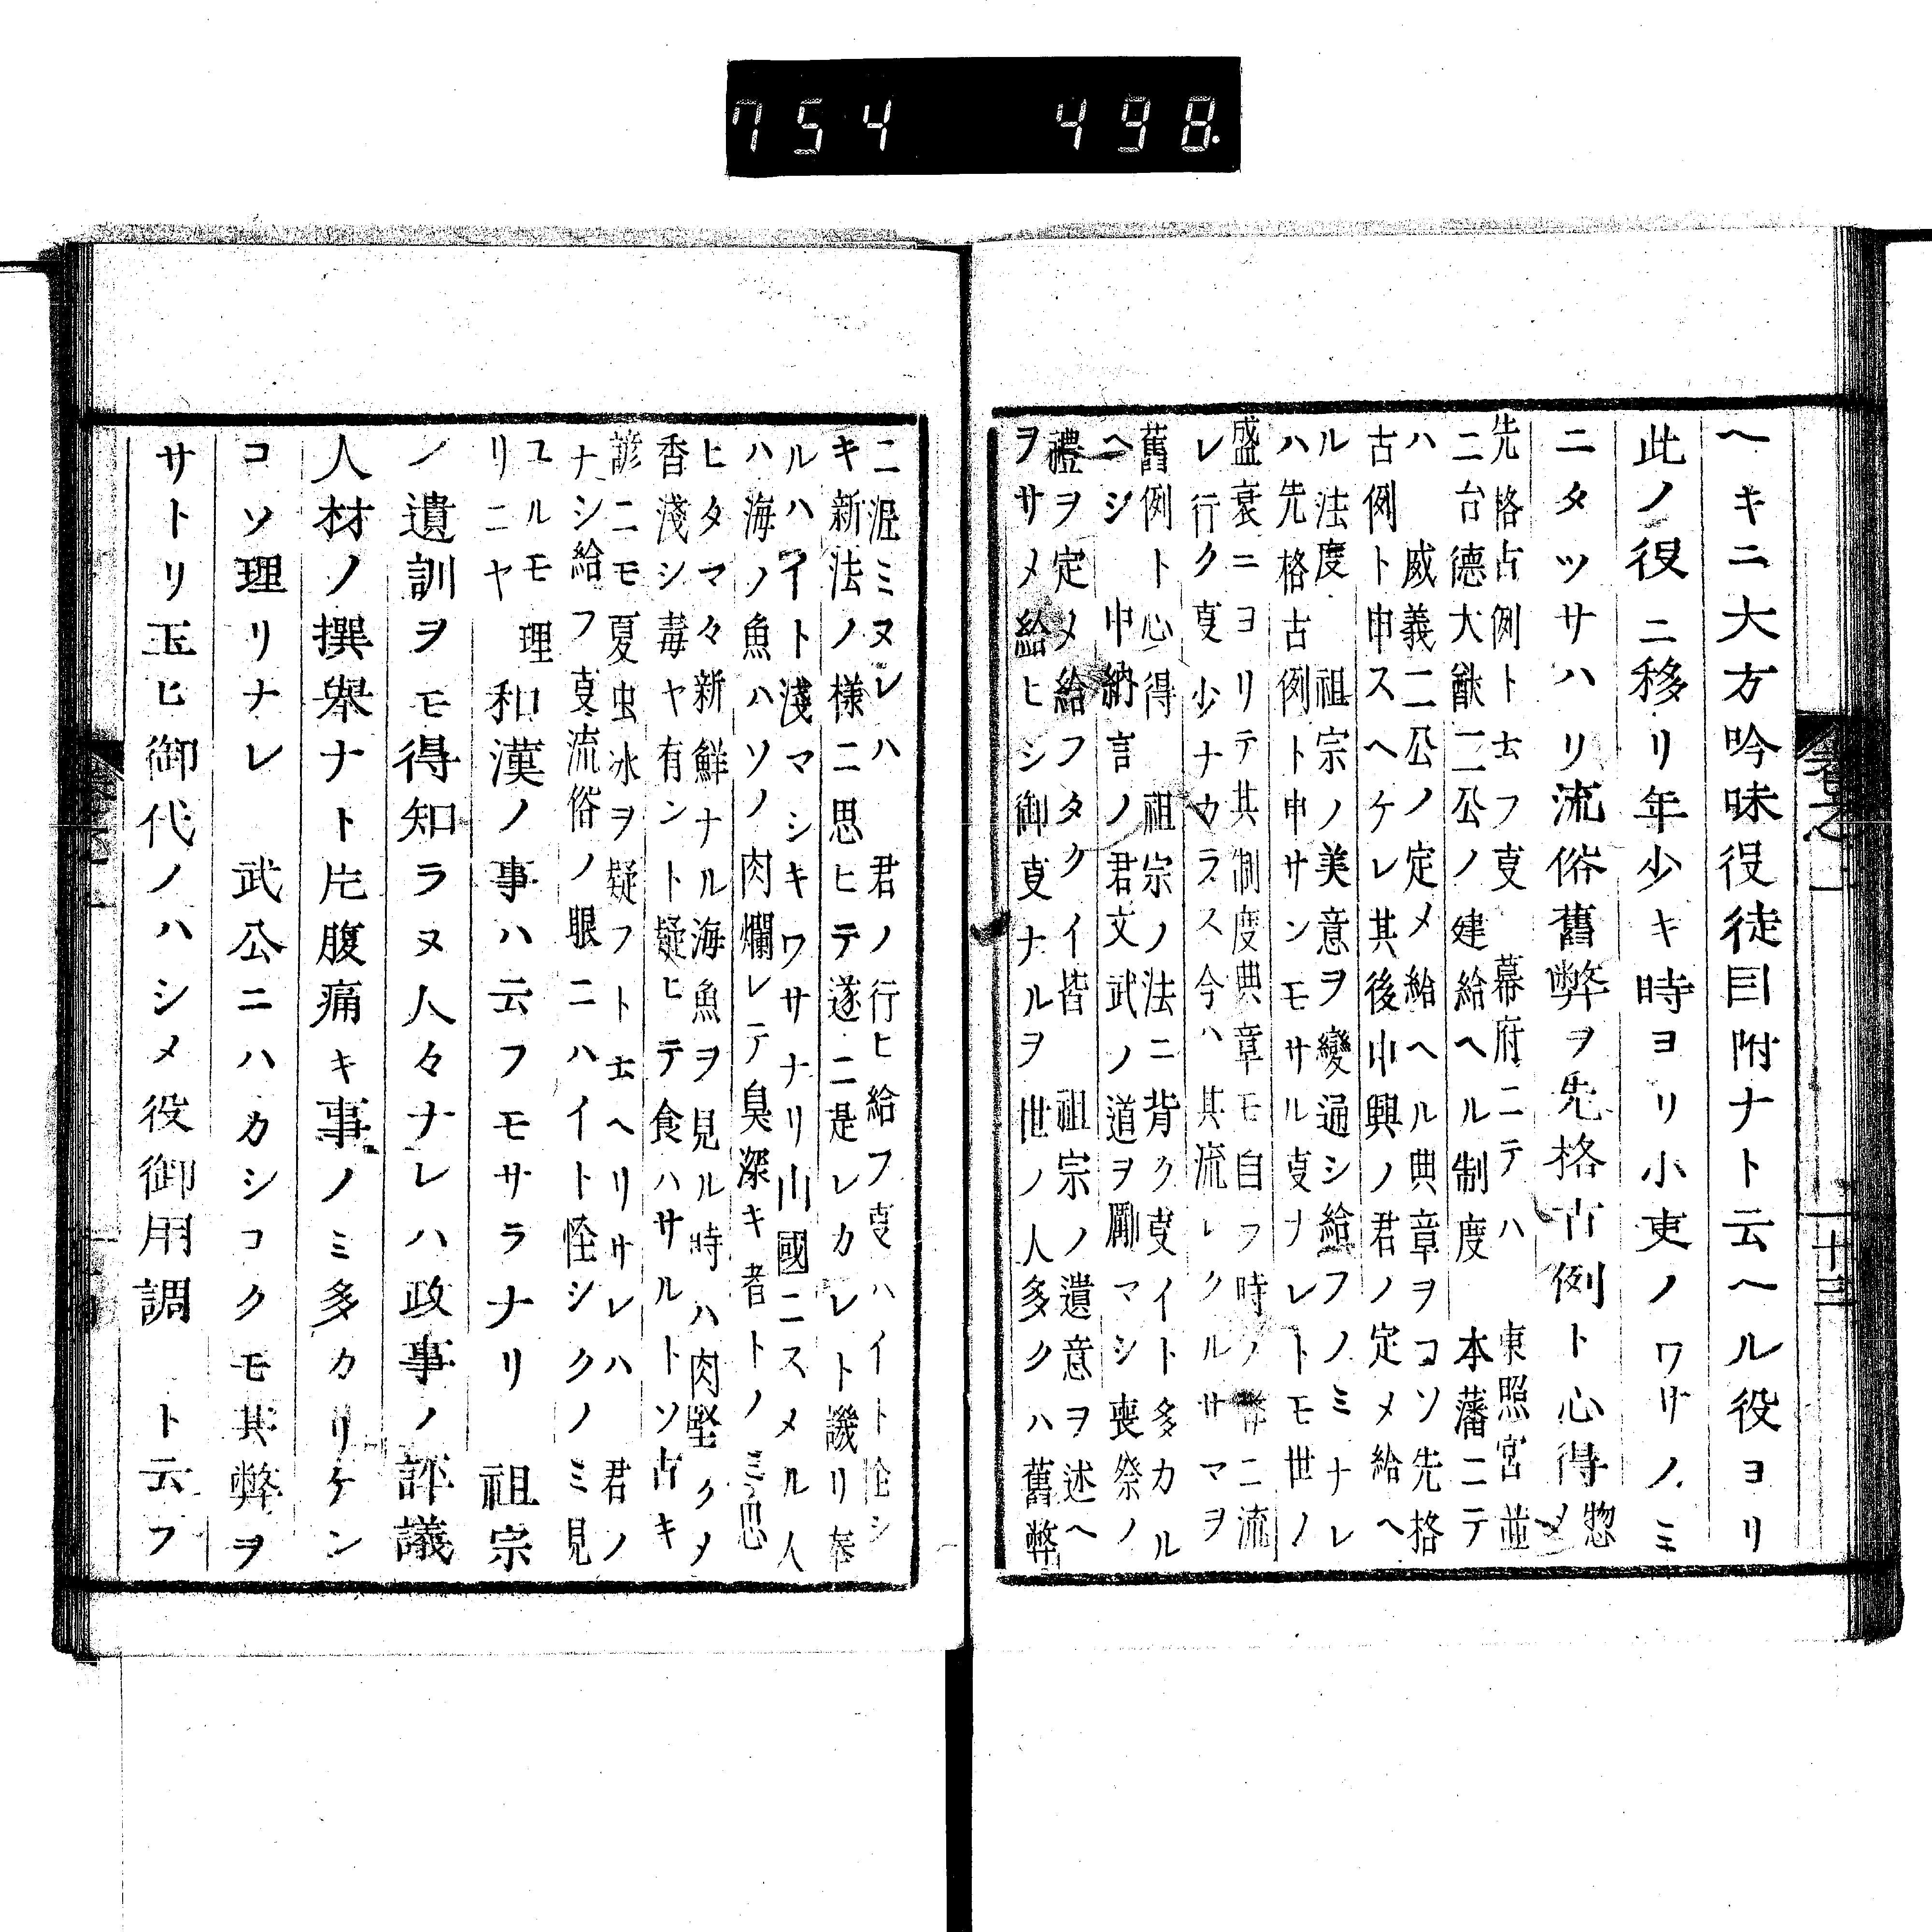 754 498
ヘキニ大方吟味役徒目附ナト云ヘル役ヨリ
此ノ役ニ移リ年少キ時ヨリ小吏ノワサノミ
ニタツサハリ流俗舊弊ヲ先格古例ト心得惣メ
先格古例ト云フ叓 幕府ニテハ 東照宮並
ニ台德大猷二公ノ建給ヘル制度 本藩ニテ
ハ 威義二公ノ定メ給ヘル典章ヲコソ先格
古例ト申スヘケレ其後中興ノ君ノ定メ給ヘ
ル法度 祖宗ノ美意ヲ變通シ給フノミナレ
ハ先格古例ト申サンモサル叓ナレトモ世ノ
盛衰ニヨリテ其制度典章モ自フ時ノ弊ニ流
レ行ク叓少ナカラス今ハ其流レクルサマヲ
舊例ト心得 祖宗ノ法ニ背ク叓イト多カル
ヘシ 中納言ノ君文武ノ道ヲ勵マシ喪祭ノ
禮ヲ定メ給フタクイ皆 祖宗ノ遺意ヲ述ヘ
ヲサメ給ヒシ御叓ナルヲ世ノ人多クハ舊弊
卷之一 十三
ニ涅ミヌレハ 君ノ行ヒ給フ叓ハイト全シ
キ新法ノ様ニ思ヒテ遂ニ是レカレト譏リ奉
ルハイト淺マシキワサナリ山國ニスメル人
ハ海ノ魚ハソノ肉爛レテ臭深キ者トノミ思
ヒタマ々新鮮ナル海魚ヲ見ル時ハ肉堅クメ
香淺シ毒ヤ有ント疑ヒテ食ハサルトソ古キ
諺ニモ夏虫氷ヲ疑フト云ヘリサレハ 君ノ
ナシ給フ叓流俗ノ眼ニハイト怪シクノミ見
ユルモ理
リニヤ 和漢ノ事ハ云フモサラナリ 祖宗
ノ遺訓ヲモ得知ラヌ人々ナレハ政事ノ評議
人材ノ撰擧ナト片腹痛キ事ノミ多カリケン
コソ理リナレ 武公ニハカシコクモ其弊ヲ
サトリ玉ヒ御代ノハシメ役御用調 ト云フ